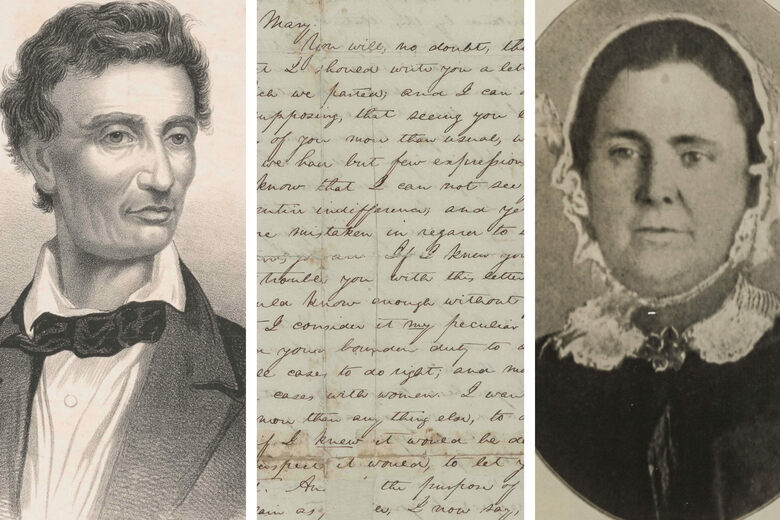 Mary.
You will, no doubt, th
I should write you a let
ch we parted; and I can
upposing, that seeing you
of you more than usual, w
we have but few expression
know that I can not see
entire indifference; and ye
mistaken in regard to
If I knew you
trouble you with this letter
uld know enough without
I consider it my peculiar
your bounden duty to
cases to do right; and mo
cases with women. I wan
more than any thing else, to
if I knew it would be do
uspect it would, to let y
the purpose of
I now say,